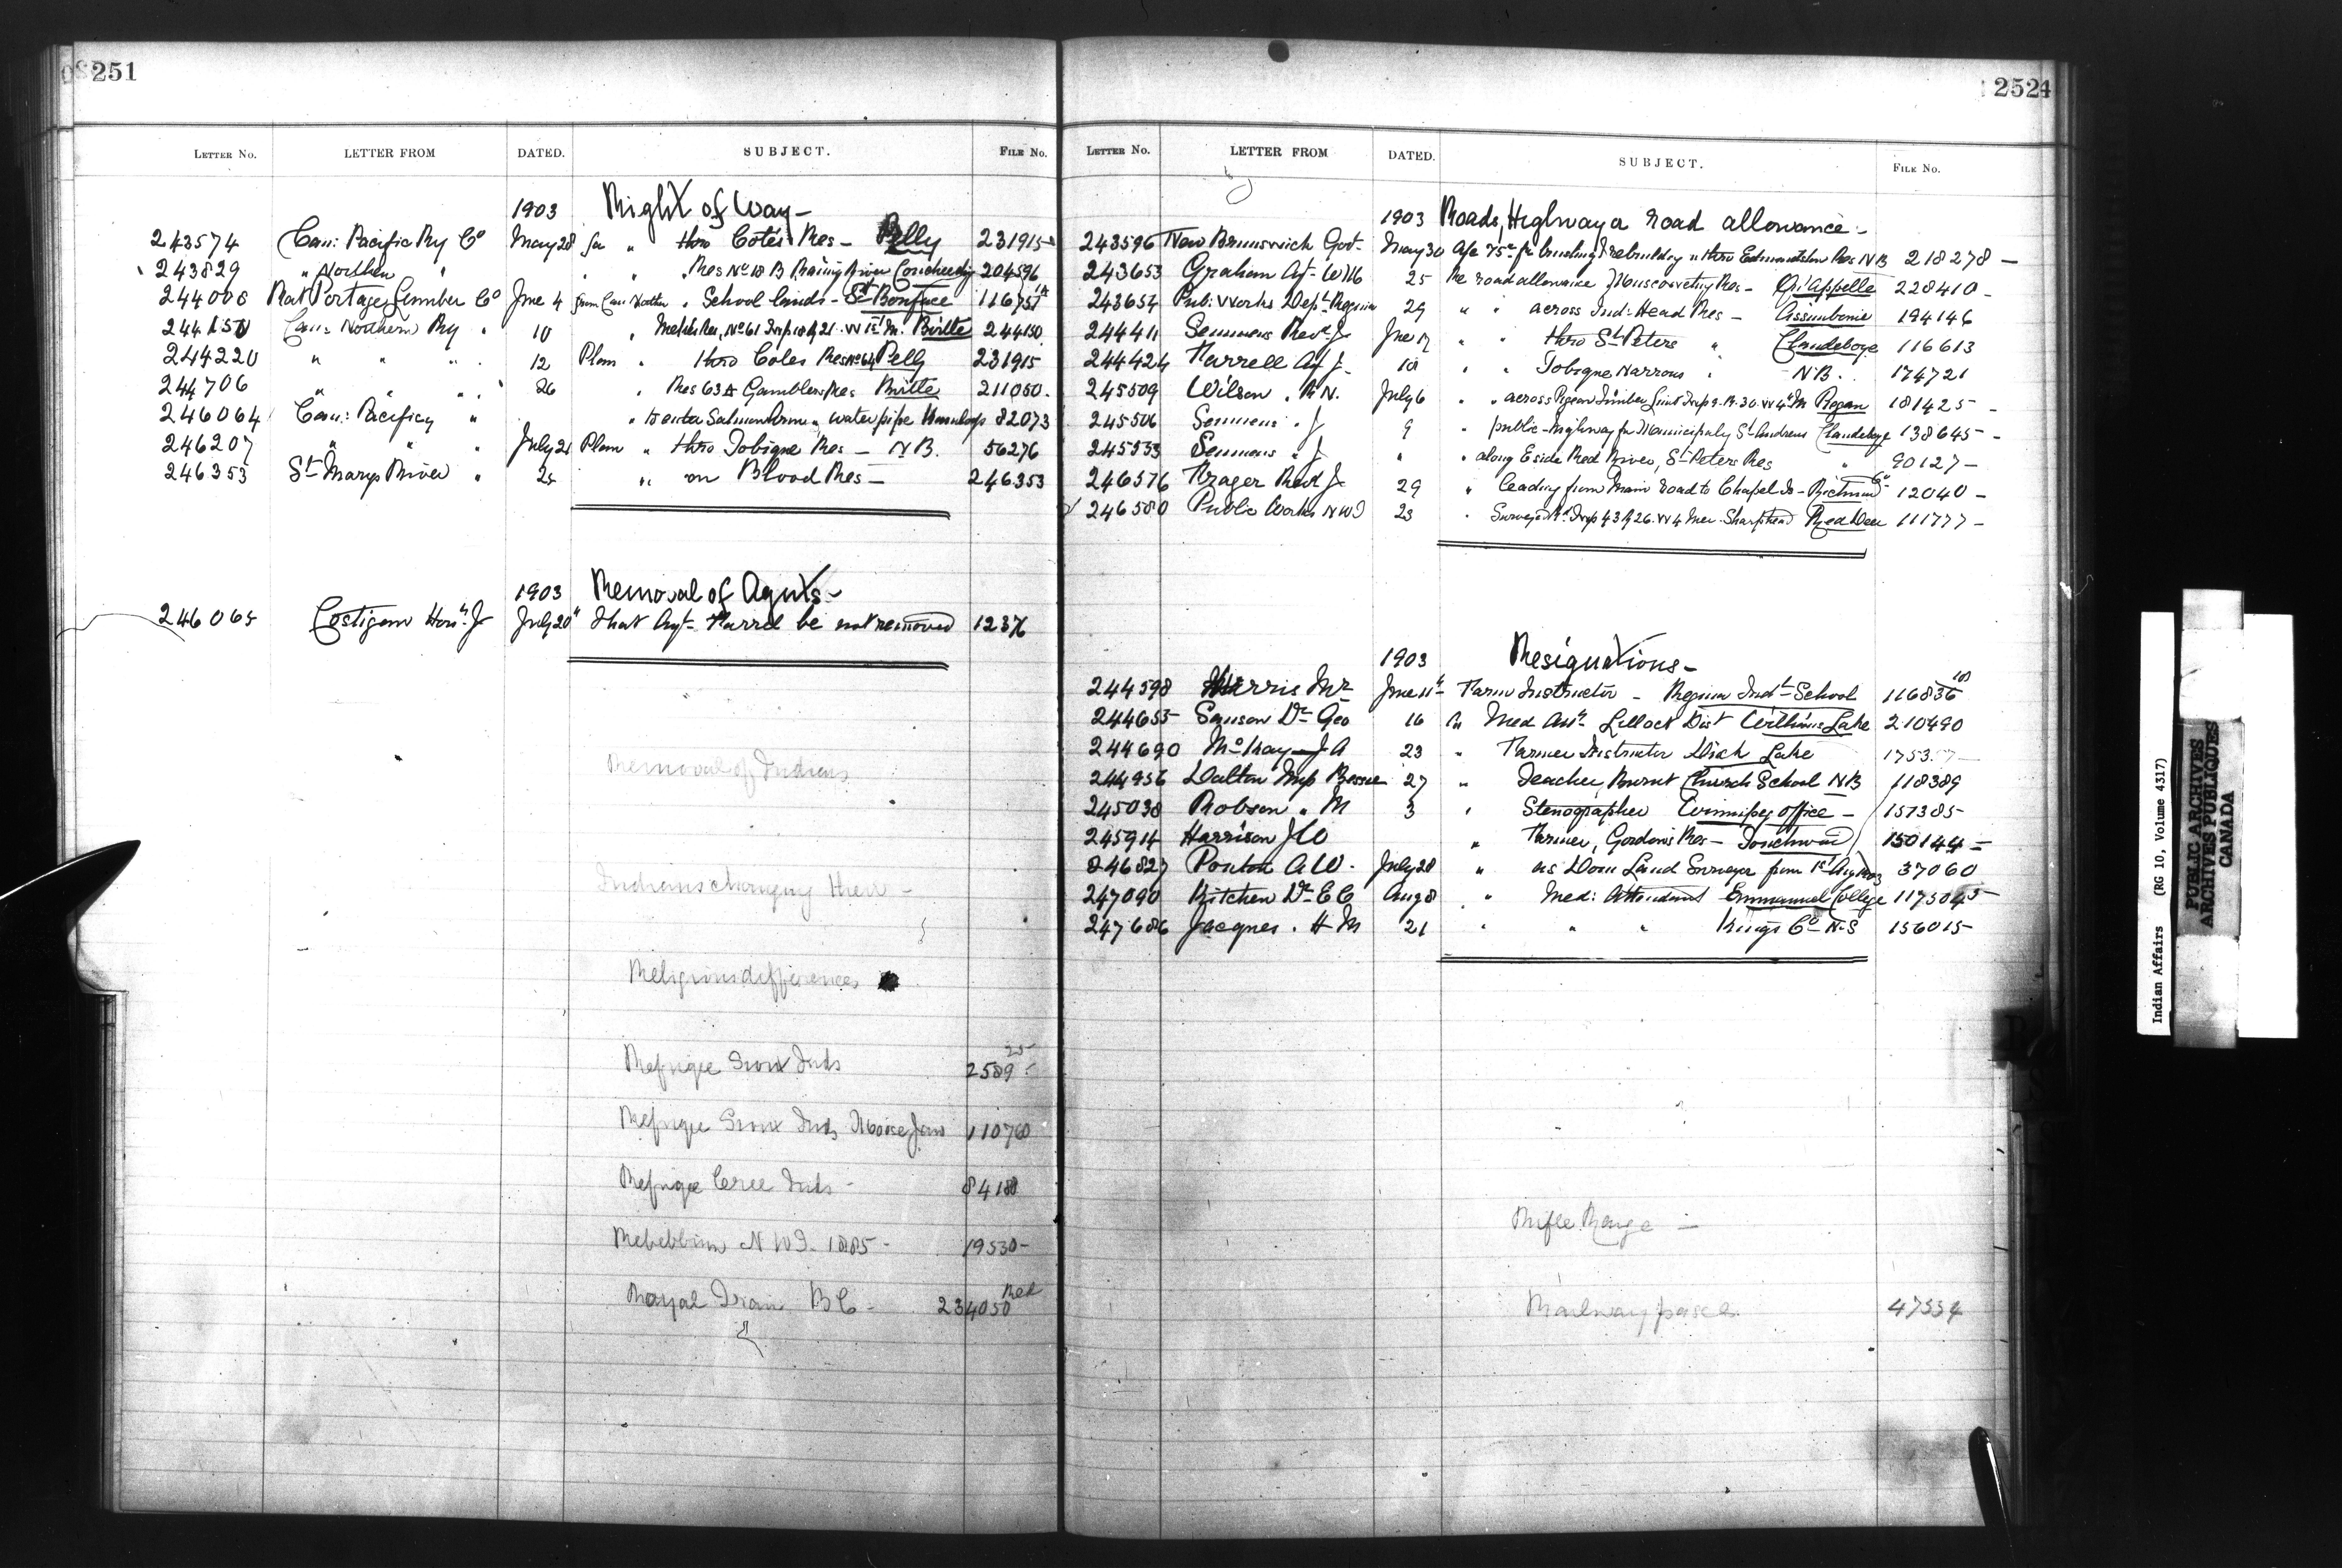 251
LETTER NO. LETTER FROM DATED. SUBJECT. FILE NO.
1903 Right of Way -
243574 Can: Pacific Ry Co May 28 for " thro Cotés Res - Pelly 231915
243829 " Northern " " " Res No 18 B Rainy River Coucheeching 204596
244008 Rat Portage Lumber Co June 4 from Can Northn " School lands - St Boniface 116751
244150 Can: Northern Ry " 10 " No 61 Twp 18 R 21 W 1st M. Birtle 244150
244220 " " " 12 Plan " thro Cotes Res No 64 Pelly 231915
244706 " " " 26 " Res 63 A Gamblers Res Birtle 211050
246064 Can: Pacific Ry " " to enter Salmon Arm " water pipe Kamloops 82073
246207 " " " July 21 Plan " thro Tobique Res - N B. 56276
246353 St Marys River " 25 " on Blood Res - 246353
1903 Removal of Agents -
246065 Costigan Hon. J July 20 that Agt Farrel be not removed 1237
Removal of Indians
Indians changing their -
Religious differences
Refugee Sioux Inds 2589
Refugee Sioux Inds Moose Jaw 110760
Refugee Cree Inds - 84180
Rebellion N W T. 1885 - 19530 -
Royal Train B C - 234050 Red
252
LETTER NO. LETTER FROM DATED. SUBJECT. FILE NO.
1903 Roads, Highway or road allowance -
243596 New Brunswick Govt May 30 for brushing & rebuilding " thro Edmundston Res N B 218278 -
243653 Graham Agt W M 25 Re road allowance Muscowequan Res - Qu'Appelle 228410 -
243654 Pub: Works Dept Regina 29 " " across Ind: Head Res - Assiniboine 194146
244411 Semmens Revd J June 17 " " thro St Peters " Clandeboye 116613
244424 Farrell Agt J - 18 " " Tobique Narrows " N B. 174721
245509 Wilson . R N. July 6 " " across Pegan Timber Limit Twp 9 . R. 30 . W 4th M Piegan 181425 -
245506 Semmens . J 9 " public highway for Municipality St Andrews Clandeboye 138645 -
245533 Semmens " J " " along E side Red River, St Peters Res " 90127 -
246576 Frager Revd J - 29 " leading from Main road to Chapel Is - Richmond Co 12040 -
246580 Public Works N W T 23 " Survey Twp 43 R 26 . W 4 Mer. Sharphead Red Deer 111777 -
1903 Resignations -
244598 Harris Mr June 11th Farm Instructor - Regina Indl School 116836
244655 Sanson Dr Geo 16 Med Attn. Lillooet Dist Williams Lake 210490
244690 McKay J A 23 " Farmer Instructor Duck Lake
244956 Dalton Miss Bessie 27 " Teacher, Burnt Church School N B 118389
245038 Robson . M 3 " Stenographer Winnipeg office - 157385
245914 Harrison J W " Farmer, Gordons Res - Touchwood 150144 -
246827 Ponton A W . July 28 " as Dom Land Surveyor from 1st Aug 1903 37060
247090 Kitchen Dr E C Aug 8 " Med: Attendant Emmanuel College
247686 Jacques . H M 21 " " " Kings Co N S 156015
Rifle Range -
Railway passes 47554
Indian Affairs (RG 10, Volume 4317)
PUBLIC ARCHIVES
ARCHIVES PUBLIQUES
CANADA